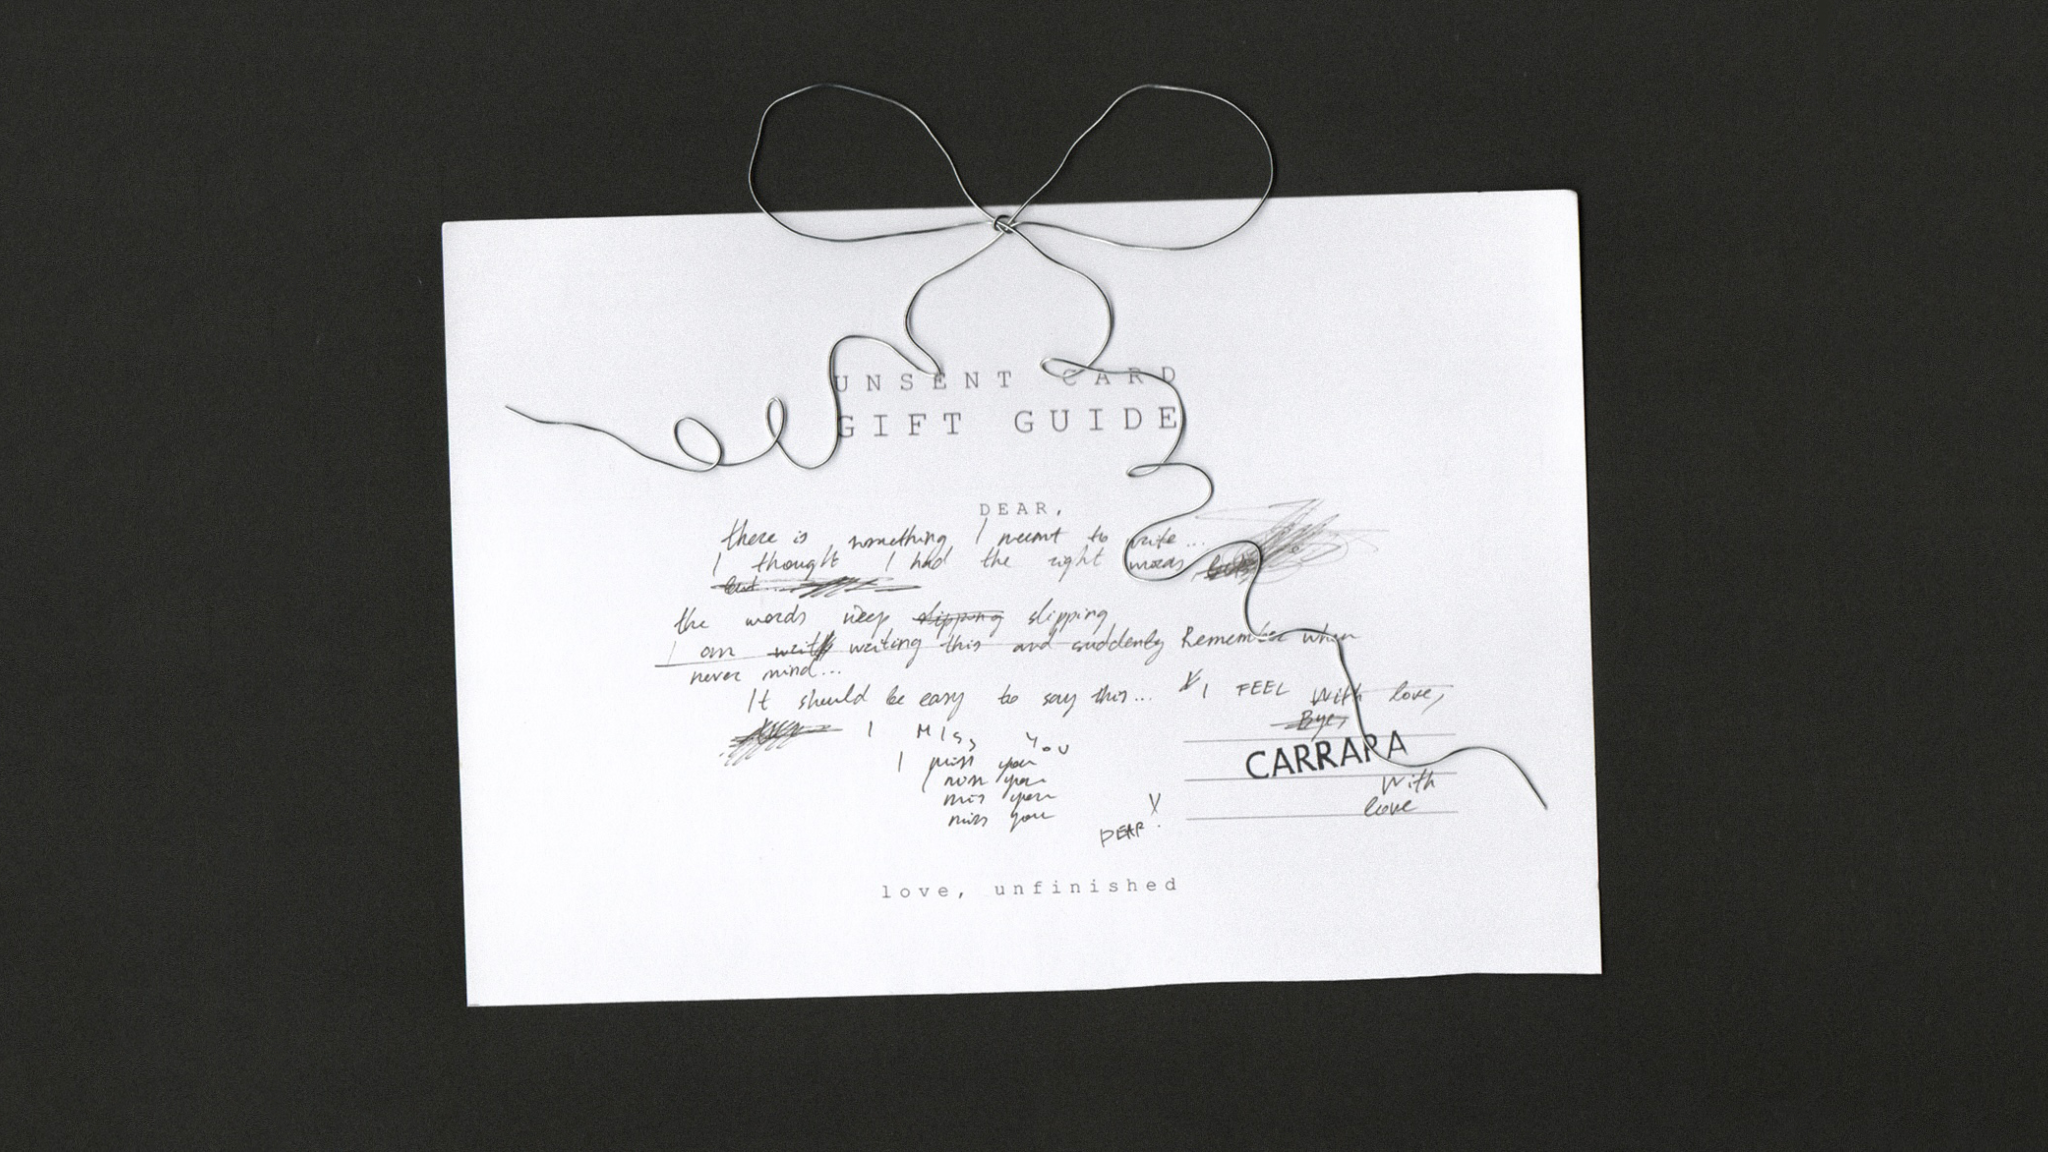 UNSENT CARD
GIFT GUIDE
DEAR,
there is something I meant to write...
I thought I had the right words but
but...
the words keep slipping slipping
I am writ writing this and suddenly Remember when
never mind...
It should be easy to say this...
I FEEL With love,
Bye,
I MISS YOU
I miss you
miss you
miss you
miss you
CARRARA
With
love
DEAR
love, unfinished